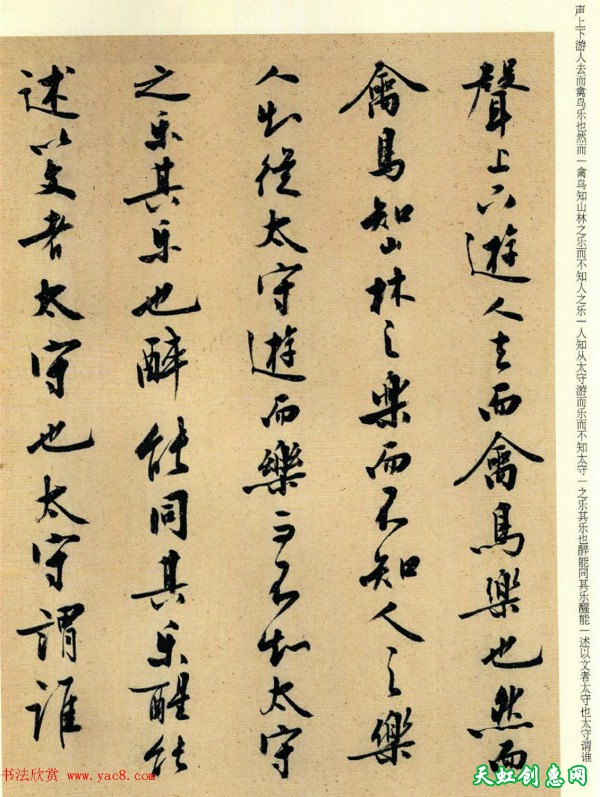 声上下游人去而禽鸟乐也然而一禽鸟知山林之乐而不知人之乐一人知从太守游而乐而不知太守一之乐其乐也醉能同其乐醒能一述以文者太守也太守谓谁
聲上下遊人去而禽鳥樂也然而
禽鳥知山林之樂而不知人之樂
人知從太守遊而樂而不知太守
之乐其乐也醉能同其乐醒能
述以文者太守也太守謂誰
书法欣赏 www.yac8.com
天虹创惠网